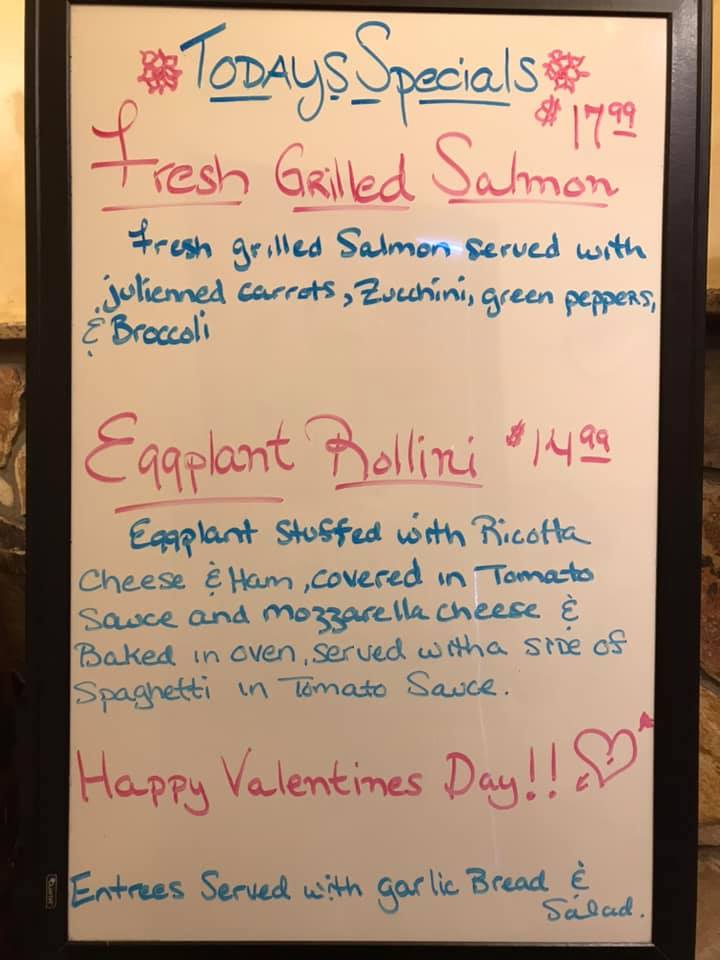 Todays Specials
$17.99
Fresh Grilled Salmon
Fresh grilled Salmon served with
julienned carrots, Zucchini, green peppers,
& Broccoli
Eggplant Rollini $14.99
Eggplant stuffed with Ricotta
Cheese & Ham, covered in Tomato
Sauce and mozzarella cheese &
Baked in oven, served with a side of
Spaghetti in Tomato Sauce.
Happy Valentines Day!!
Entrees Served with garlic Bread &
Salad.